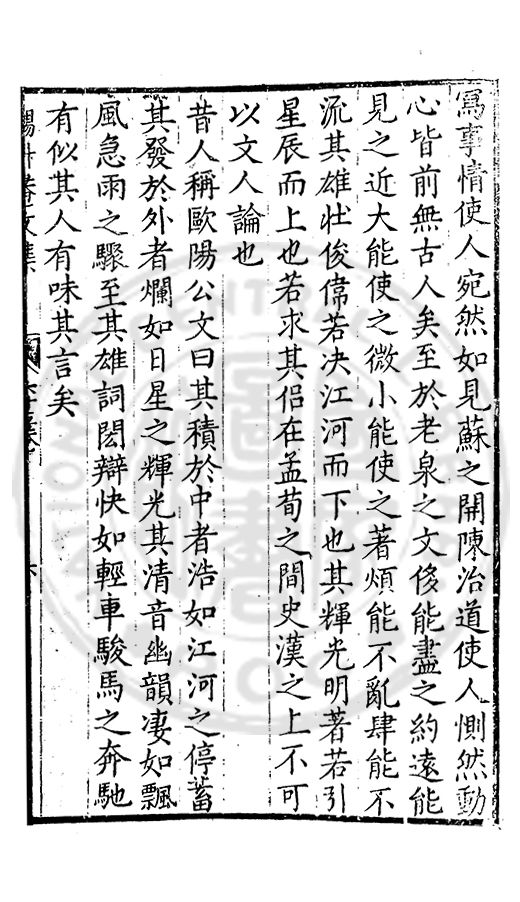 寫事情使人宛然如見蘇之開陳治道使人惻然動
心皆前無古人矣至於老泉之文侈能盡之約遠能
見之近大能使之微小能使之著煩能不亂肆能不
流其雄壯俊偉若决江河而下也其輝光明著若引
星辰而上也若求其侣在孟荀之間史漢之上不可
以文人論也
昔人稱歐陽公文曰其積於中者浩如江河之停蓄
其發於外者爛如日星之輝光其清音幽韻凄如飄
風急雨之驟至其雄詞閎辯快如輕車駿馬之奔馳
有似其人有味其言矣